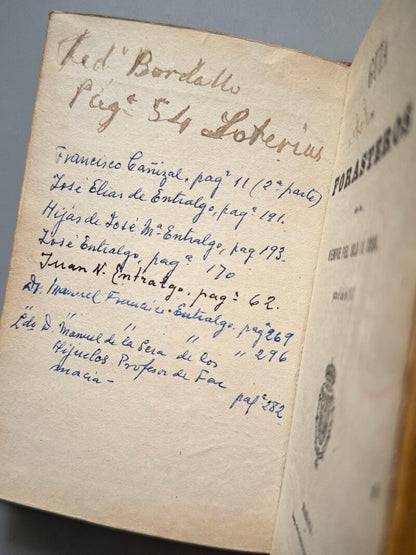 Fed° Bordallo
Pág° 54 Loterias
Francisco Cañizal, pag° 11 (2ª parte)
José Elias de Entralgo, pagª 191.
Hijas de José Mª Entralgo, pag 193.
José Entralgo, pagª 170
Juan N. Entralgo, pagª 62.
Dr. Manuel Francisco Entralgo, pagª 269
" " " " " 296
Ldo D. Manuel de la Sera de los
Hijuelos. Profesor de Far
macia -
pagª 282
GUIA
FORASTEROS
SIEMPRE FIEL ISLA DE CUBA